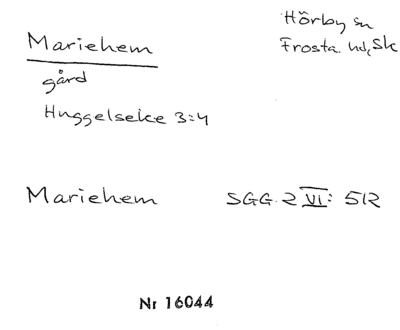 Mariehem
Hörby sn
Frosta hd, Sk
gård
Huggelseke 3:4
Mariehem SGG 2 VI: 512
Nr 16044